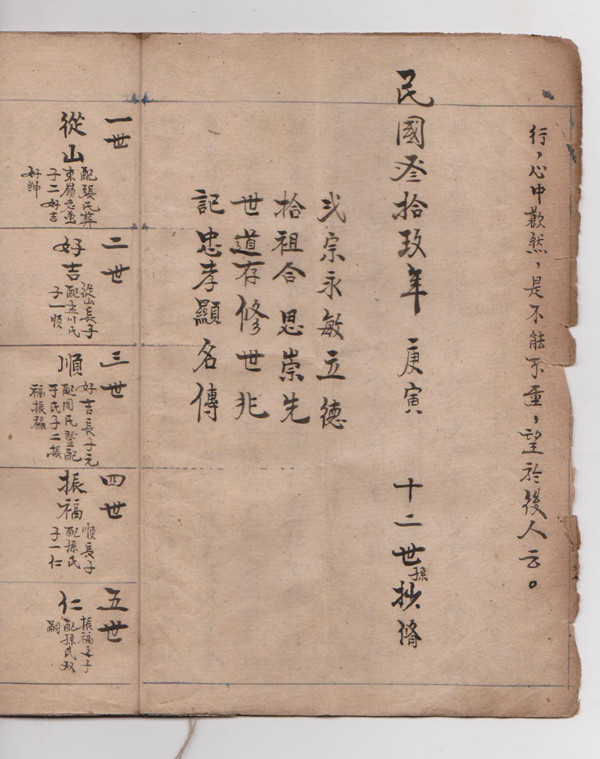 行，心中歡然，是不能不重，望於後人云。
民國叁拾玖年 庚寅 十二世孫抄脩
弍宗永敏立德
拾祖合恩崇先
世道存修世兆
記忠孝顯名傳
一世
從山
配張氏葬
東嶺老塋
子二好吉
好帥
二世
好吉
從山長子
子一順
三世
順
好吉長子元
配周氏繼配
于氏子二振
福振祿
四世
振福
順長子
配孫氏
子一仁
五世
仁
振福之子
配孫氏双
嗣